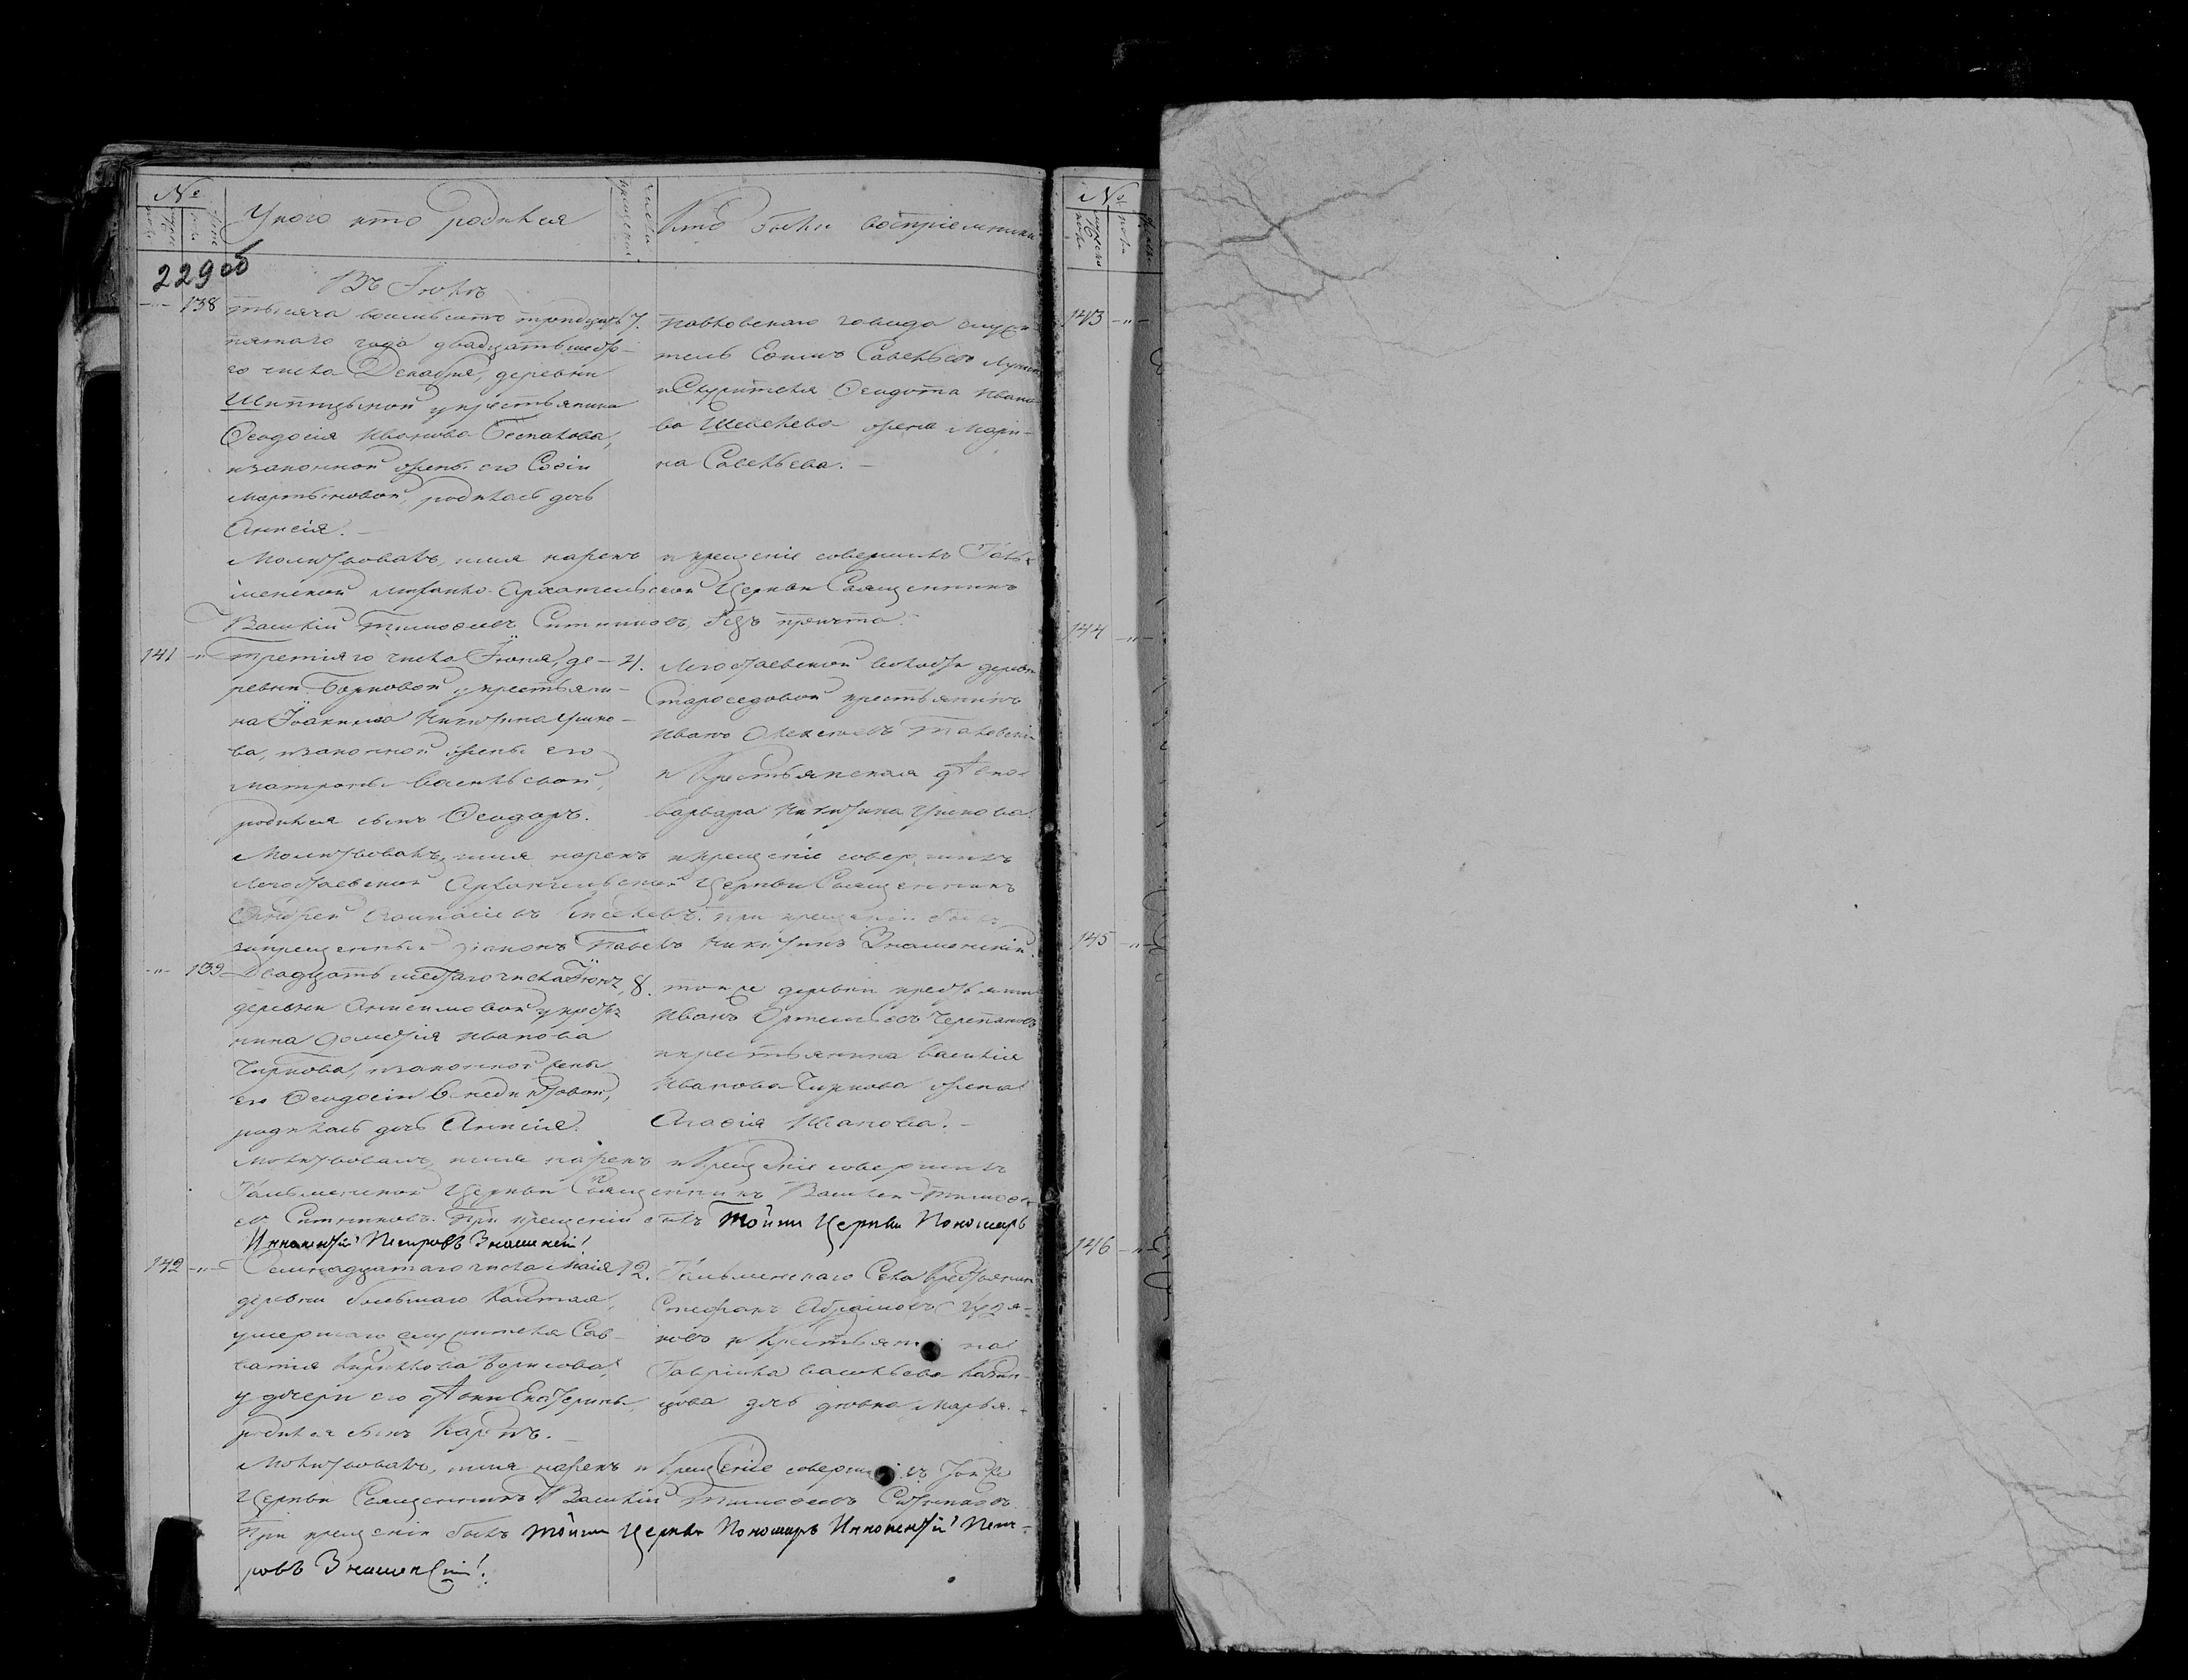 №
мужеска пола
женска пола
У кого кто родился
число крещенія
Кто были воспріемники
229 об
Въ Іюнѣ
138
тысяча восемьсотъ тридцать
пятаго года двадцать шестаго
го числа Декабря, деревни
Шипицыной у крестьянина
Ѳеодосія Иванова Беспалова,
и законной жены его Софіи
Мартыновой, родилась дочь
Анисія.
7.
Павловскаго завода служи-
тель Ефимъ Савельевъ
и Служителя Ѳеодота Ивано-
ва Шевелева жена Мари-
на Савельева.
Молитвовалъ, имя нарекъ и крещеніе совершилъ Таль-
менской Михаило-Архангельской Церкви Священникъ
Василій Тимофеевъ Ситниковъ, безъ причта.
141
третіяго числа Іюня, де-
ревни Боровой у крестьяни-
на Іоакима Никитина Ушко-
ва, и законной жены его
Матроны Васильевой,
родился сынъ Ѳеодоръ.
4.
Легостаевской волости деревни
Староседовой крестьянинъ
Иванъ Алексеевъ
и Крестьянская дѣвка
Варвара Никитина Ушкова.
Молитвовалъ, имя нарекъ и крещеніе совершилъ
Легостаевской Архангельской Церкви Священникъ
Андрей Афанасіевъ Киселевъ. При крещеніи былъ
запрещенный діаконъ Павелъ Никитинъ Знаменскій.
139
Двадцать шестаго числа Іюня,
деревни Анисимовой у крестья
нина Дометія Иванова
Чиркова, и законной жены
его Ѳеодосіи Бенедиктовой,
родилась дочь Анисія.
8.
той же деревни крестьянинъ
Иванъ Артемьевъ Черепановъ
и крестьянина Василія
Иванова Чиркова жена
Агафія Иванова.
Молитвовалъ, имя нарекъ и Крещеніе совершилъ
Тальменской Церкви Священникъ Василій Тимофе
евъ Ситниковъ. При крещеніи былъ той же Церкви Пономарь
Иннокентій Петровъ Знаменскій
142
Семнадцатаго числа Маія
деревни большаго Калтая,
умершаго служителя Сав-
ватія Кирилова Борисова,
у дочери его дѣвки Екатерины,
родился сынъ Карпъ.
12.
Тальменскаго Села Крестьянинъ
Стефанъ Абрамовъ
и Крестьянина
Гавріила Васильева
дочь дѣвка Марья.
Молитвовалъ, имя нарекъ и Крещеніе совершилъ той же
Церкви Священникъ Василій Тимофеевъ Ситниковъ
При крещеніи былъ той же Церкви Пономарь Иннокентій Пет-
ровъ Знаменскій.
№
143
144
145
146